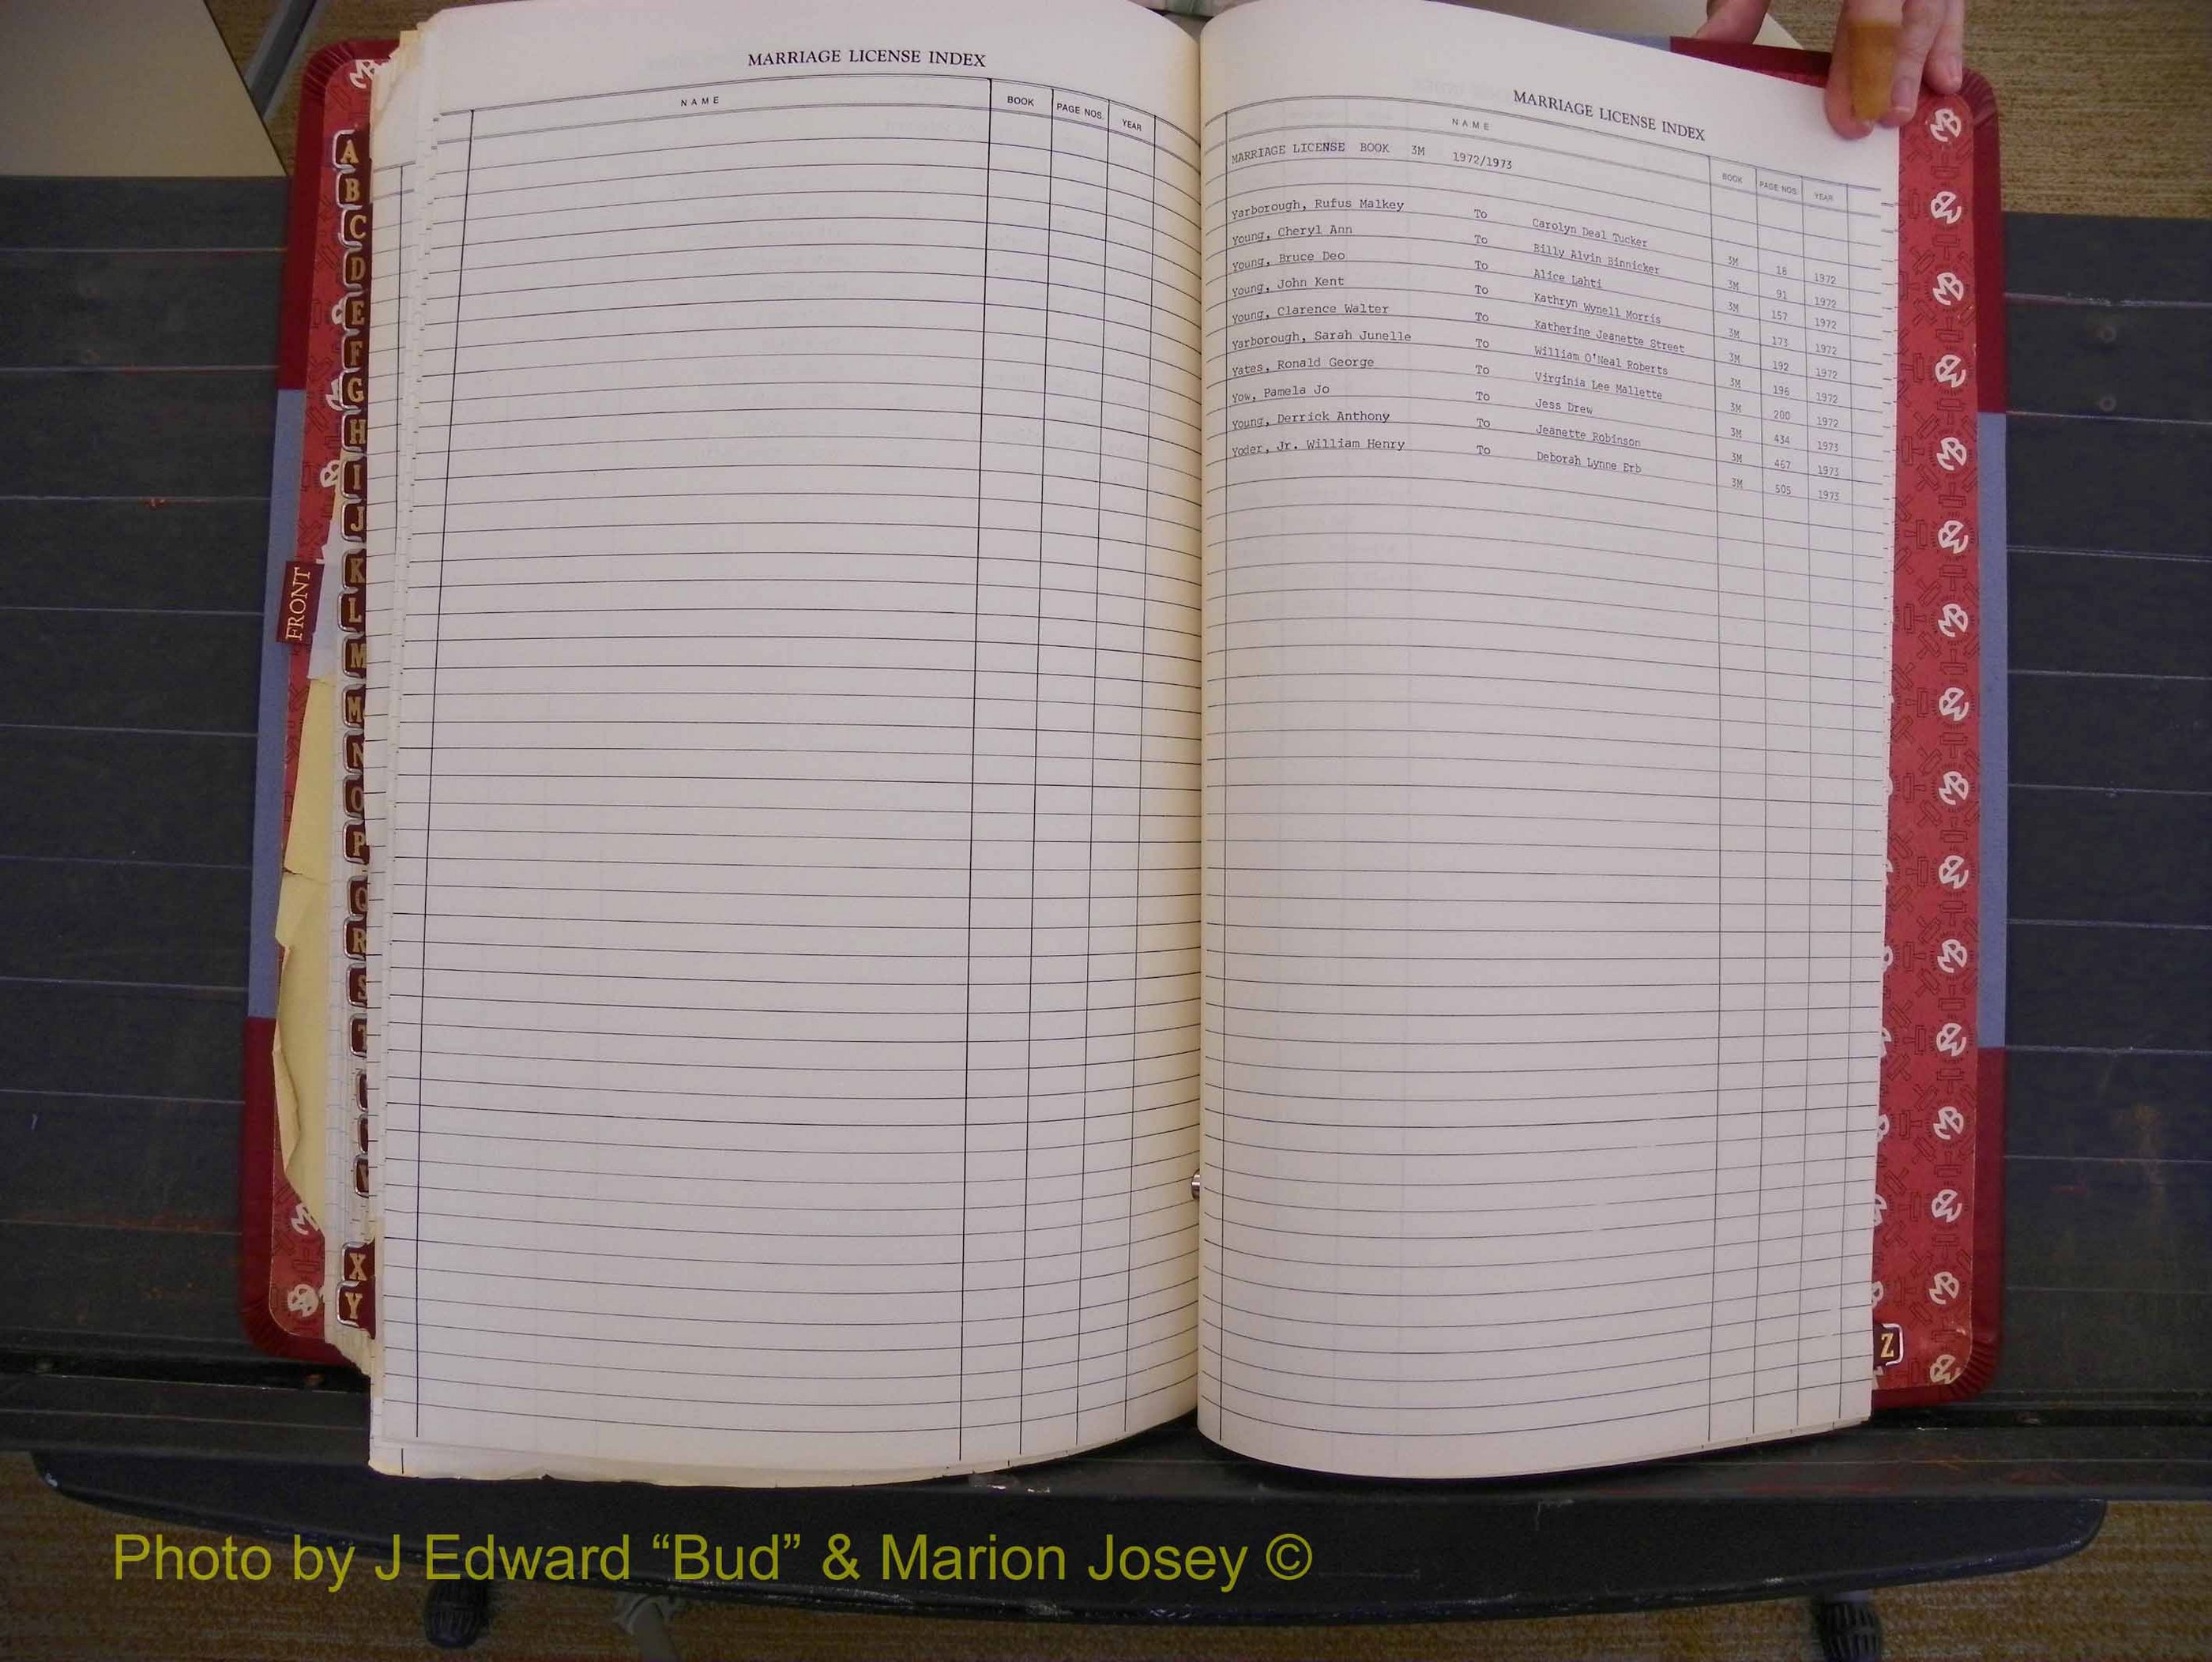 MARRIAGE LICENSE INDEX
NAME BOOK PAGE NOS. YEAR
MARRIAGE LICENSE INDEX
NAME BOOK PAGE NOS YEAR
MARRIAGE LICENSE BOOK 3M 1972/1973
Yarborough, Rufus Malkey To Carolyn Deal Tucker 3M 18 1972
Young, Cheryl Ann To Billy Alvin Binnicker 3M 91 1972
Young, Bruce Deo To Alice Lahti 3M 157 1972
Young, John Kent To Kathryn Wynell Morris 3M 173 1972
Young, Clarence Walter To Katherine Jeanette Street 3M 192 1972
Yarborough, Sarah Junelle To William O'Neal Roberts 3M 196 1972
Yates, Ronald George To Virginia Lee Mallette 3M 200 1972
Yow, Pamela Jo To Jess Drew 3M 434 1973
Young, Derrick Anthony To Jeanette Robinson 3M 467 1973
Yoder, Jr. William Henry To Deborah Lynne Erb 3M 505 1973
A
B
C
D
E
F
G
H
I
J
K
L
M
M
N
O
P
Q
R
S
T
X
Y
Z
FRONT
Photo by J Edward “Bud” & Marion Josey ©